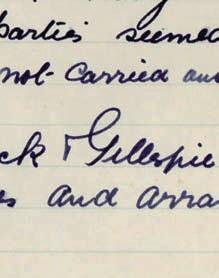 parties seemed
not carried and
ck & Gillespie
s and arra